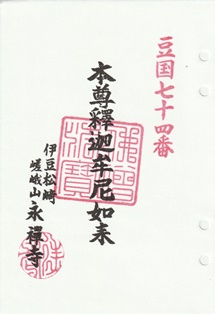 豆国七十四番
本尊釋迦牟尼如来
伊豆松崎
嵯峨山
永禪寺